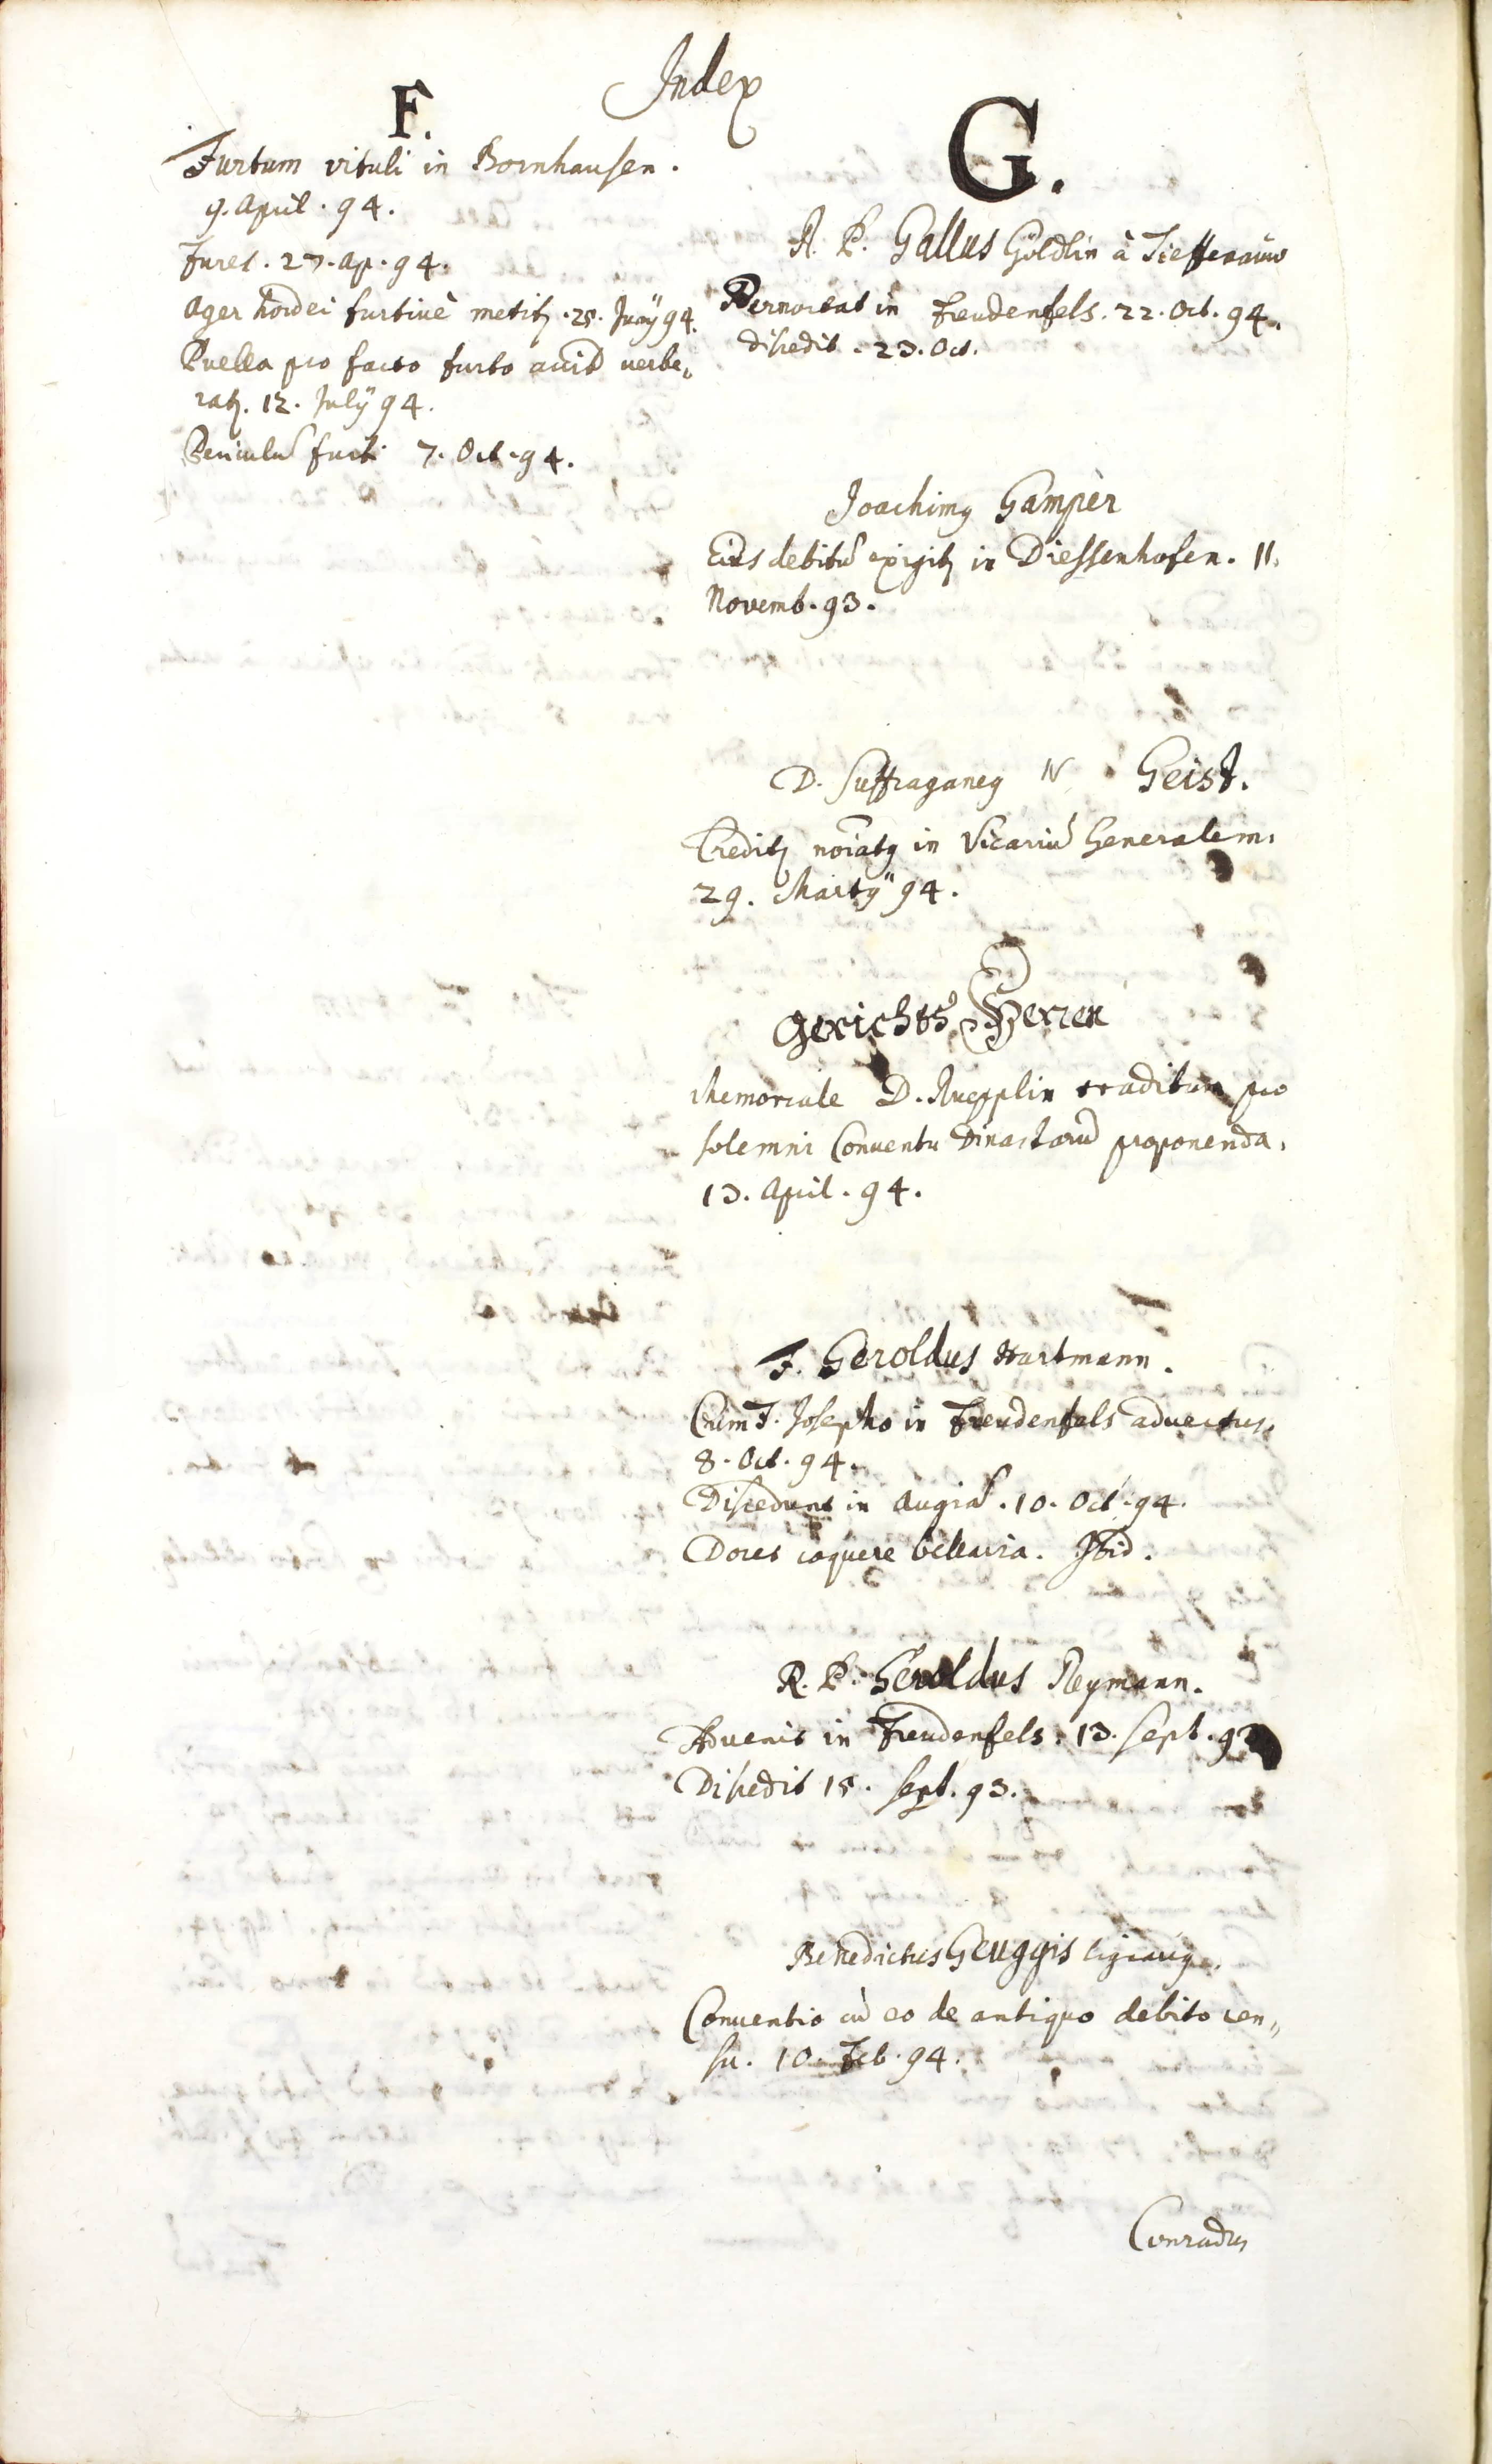 Index
F.
Furtum vituli in Bornhausen.
9. April. 94.
Fures. 27. ap. 94.
Ager hordei furtivè metitꝫ. 25. Junÿ 94.
Puella pro facto furto verbe„
ratꝫ. 12. Julÿ 94.
Periculũ furti 7. Oct. 94.
G.
R. P. Gallus Göldlin à Tieffenauw
Pernoctat in Freudenfels. 22. Oct. 94.
discedit. 23. Oct.
Joachimꝰ Gamper
Eius debitũ exigitꝫ in Diessenhofen. 11.
Novemb. 93.
D. Suffraganeꝰ N. Geist.
Creditꝫ noĩatꝰ in Vicariũ Generalem.
29. Martÿ 94.
Gerichts Herren
Memoriale D. Ruepplin traditum pro
solemni Conventu Dinastarũ proponenda.
13. April. 94.
F. Geroldus Hartmann.
Cum F. Josepho in Freudenfels advectus.
8. Oct. 94.
Discedunt in Augiã. 10. Oct. 94.
Docet coquere bellaria. Ibid.
R. P. Geroldus Reymann.
Advenit in Freudenfels. 13. Sept. 93
Discedit 15. Sept. 93.
Benedictus Geuggis
Conventio cũ eo de antiquo debito cen„
su. 10. Feb. 94.
Conradus